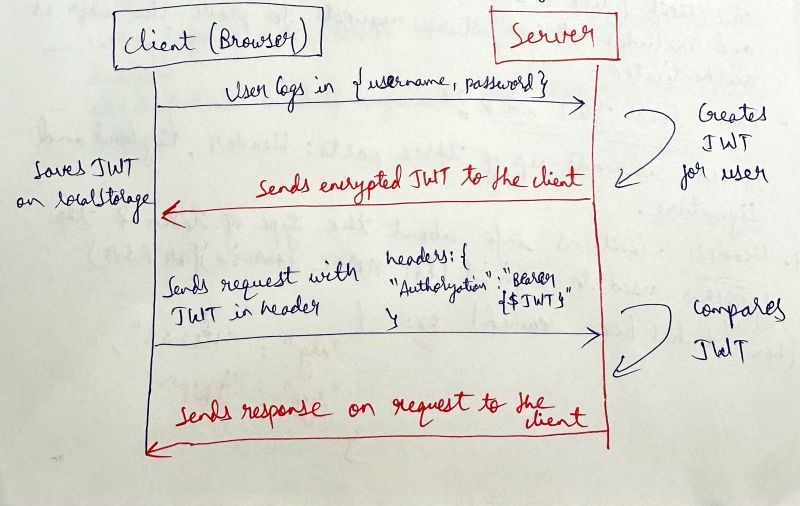 Client (Browser)
Server
User logs in {username, password}
Creates
JWT
for user
Saves JWT
on localStorage
Sends encrypted JWT to the client
Sends request with
JWT in header
headers: {
"Authorization": "Bearer
{$JWT}"
}
Compares
JWT
Sends response on request to the
client